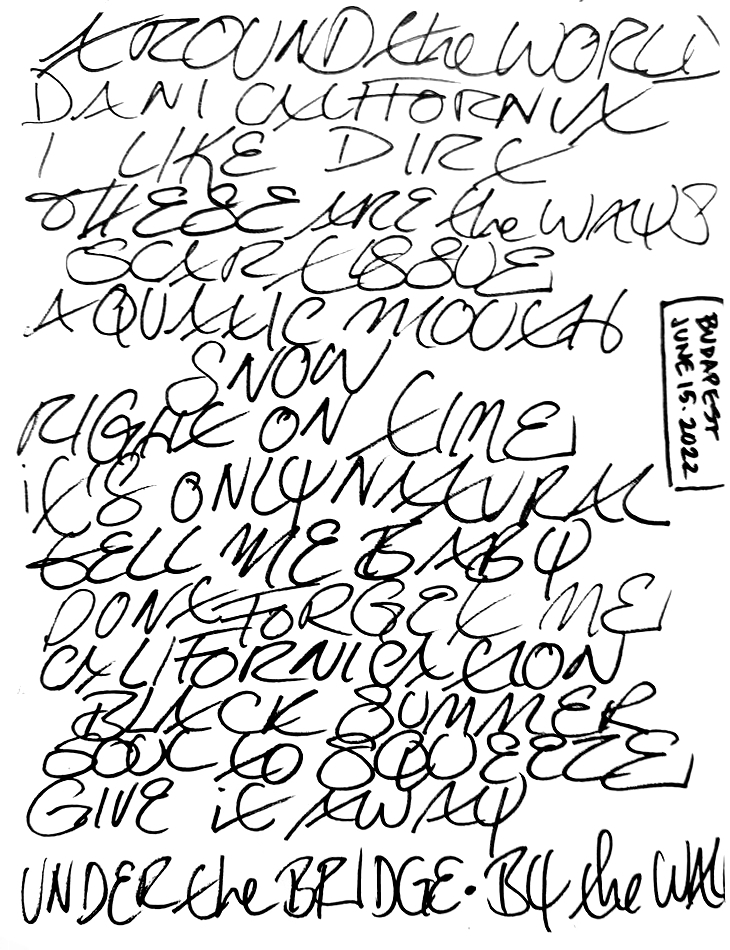 AROUND the WORLD
DANI CALIFORNIA
I LIKE DIRT
THESE ARE the WAYS
SCAR TISSUE
AQUATIC MOUTH
SNOW
RIGHT ON TIME
iT'S ONLY NATURAL
TELL ME BABY
DONT FORGET ME
CALIFORNICATION
BLACK SUMMER
SOUL TO SQUEEZE
GIVE iT AWAY
UNDER the BRIDGE · BY the WAY
BUDAPEST
JUNE 15. 2022